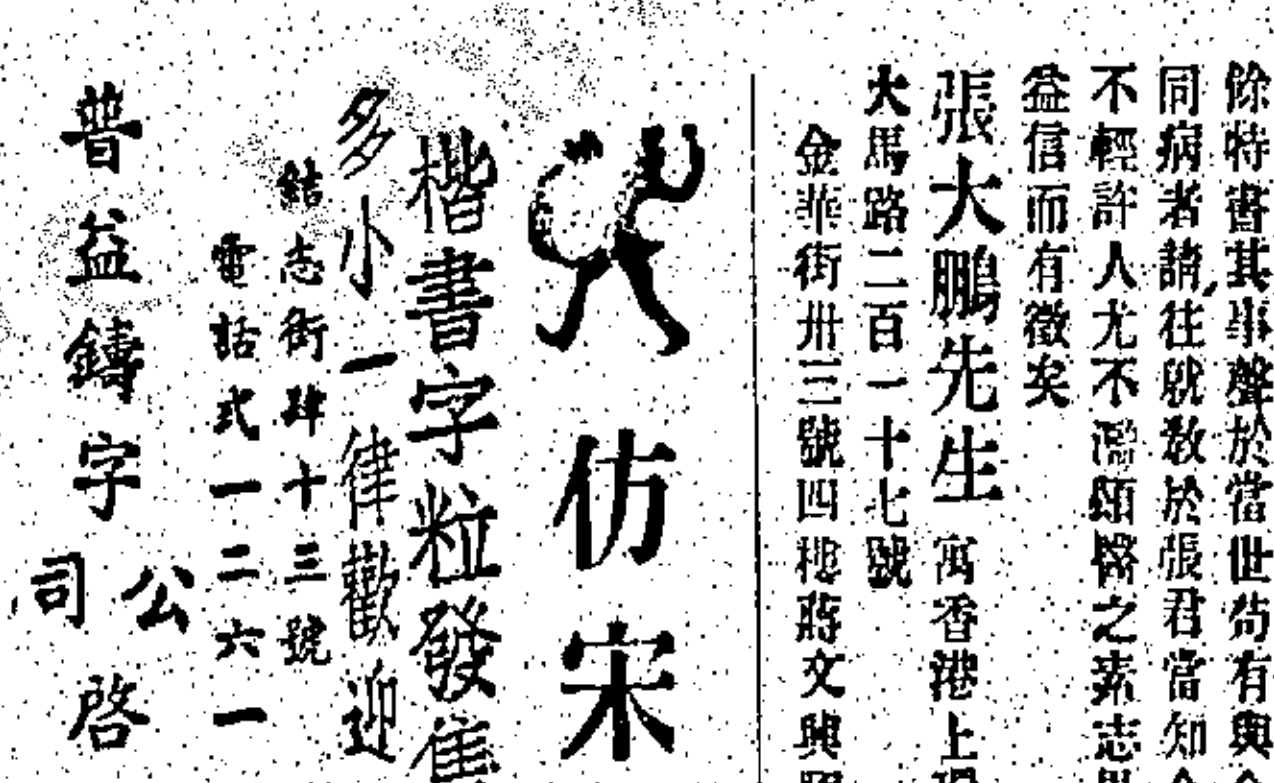 餘特書其事聲於當世苟有與
同病者請往就教於張君當知
不輕許人尤不濫頌醫之素志
益信而有徵矣
張大鵬先生寓香港上環
大馬路二百一十七號
金華街卅三號四樓蔣文興
仿宋
楷書字粒發售
多小一律歡迎
結志街肆十三號
電話弍一二六一
普益鑄字公司啓